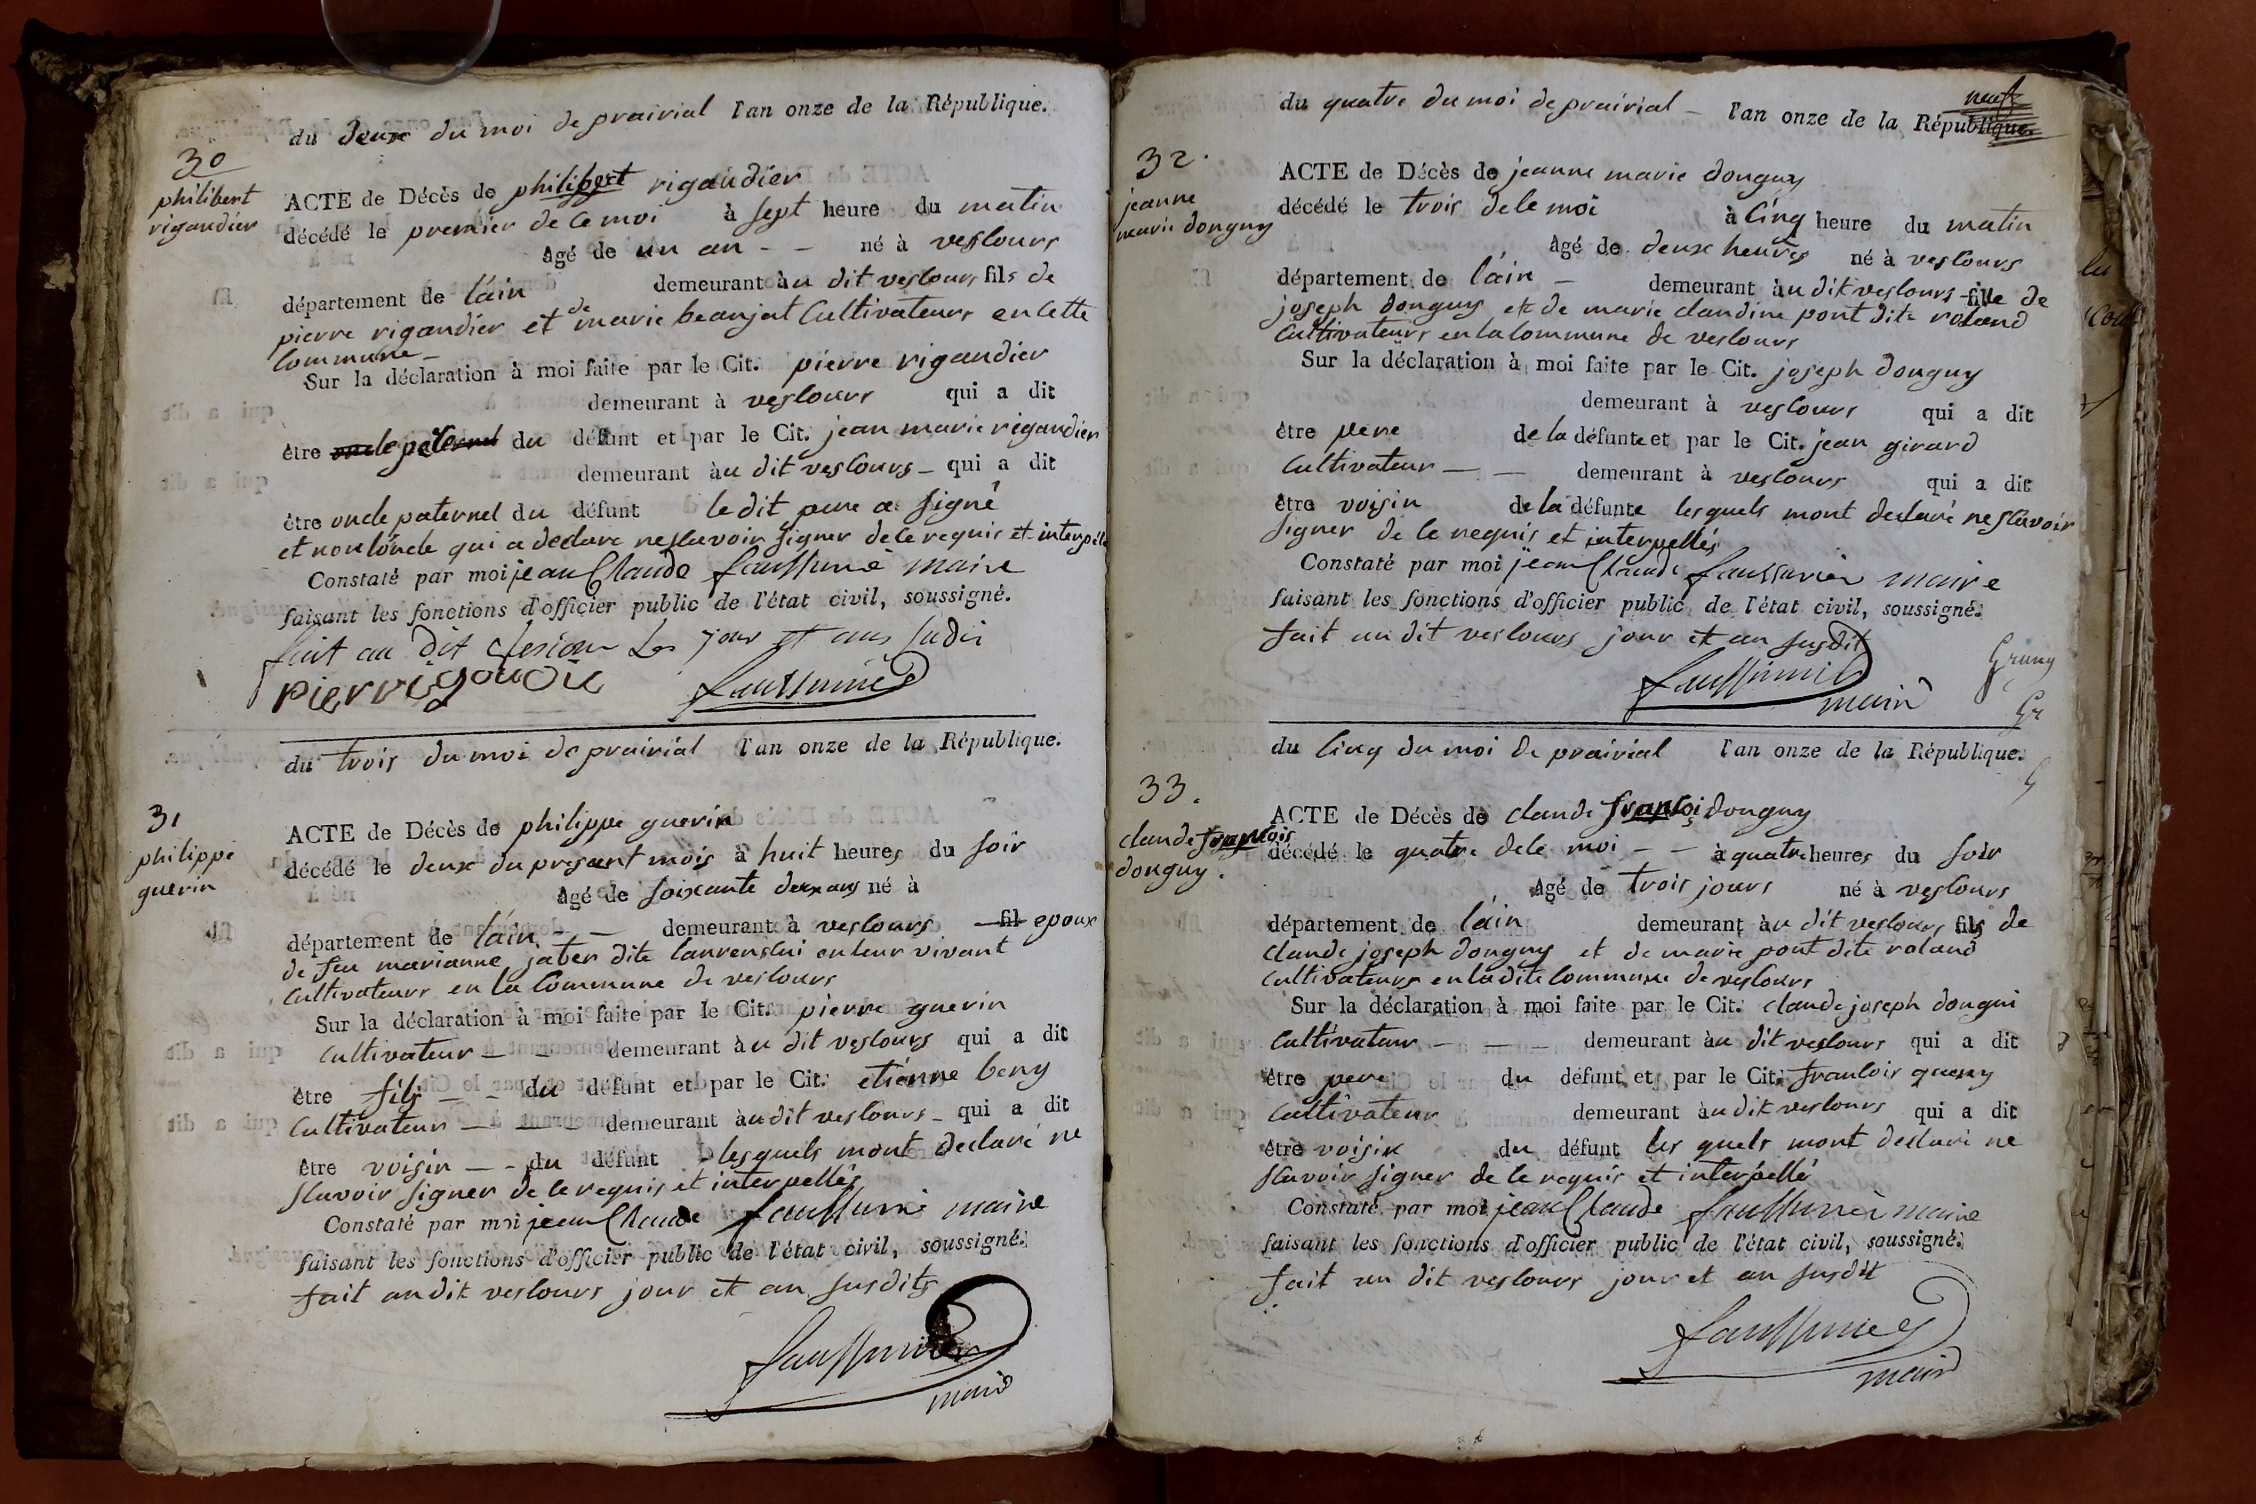 du deux du moi de prairial l'an onze de la République.
30
philibert
rigaudier
ACTE de Décès de philibert rigaudier
décédé le premier de ce moi à sept heure du matin
âgé de un an - - né à veslours
département de l'ain demeurant au dit veslours fils de
pierre rigaudier et de marie beaujat Cultivateurs en Cette
Commune -
Sur la déclaration à moi faite par le Cit. pierre rigaudier
demeurant à veslours qui a dit
être oncle paternel du défunt et par le Cit. jean marie rigaudier
demeurant àu dit veslours - qui a dit
être oncle paternel du défunt le dit pere a signé
et non l'oncle qui a declare ne scavoir signer de ce requis et interpélé
Constaté par moi jean Claude faussurié maire
faisant les fonctions d'officier public de l'état civil, soussigné.
fait au dit les jour et ans sudi
pierrigoudie
faussurié
du trois du moi de prairial l'an onze de la République.
31
philippe
guerin
ACTE de Décès de philippe guerin
décédé le deux du present mois à huit heures du soir
âgé de soixante deux ans né à
département de l'ain - demeurant à veslours - fil epoux
de feu marianne jater dite laurenslui en leur vivant
Cultivateurs en la Commune de veslours
Sur la déclaration à moi faite par le Cit. pierre guerin
Cultivateur - - demeurant àu dit veslours qui a dit
être fils - - du défunt et par le Cit. etienne beny
Cultivateur - - - demeurant àu dit veslours - qui a dit
être voisin - - du défunt lesquels mont declaré ne
scavoir signer de ce requis et interpellés
Constaté par moi jean Claude faussurié maire
faisant les fonctions d'officier public de l'état civil, soussigné.
fait au dit veslours jour et an susdits
faussurier
maire
du quatre du moi de prairial - l'an onze de la République.
neuf
32.
jeanne
marie donguy
ACTE de Décès de jeanne marie donguy
décédé le trois de ce moi à Cinq heure du matin
âgé de deux heures né à veslours
département de l'ain - demeurant àu dit veslours fille de
joseph donguy et de marie claudine pont dite roland
Cultivateurs en la Commune de veslours
Sur la déclaration à moi faite par le Cit. joseph donguy
demeurant à veslours qui a dit
être pere de la défunte et par le Cit. jean girard
Cultivateur - - demeurant à veslours qui a dit
être voisin de la défunte lesquels mont declaré ne scavoir
signer de ce requis et interpellés
Constaté par moi jean Claude faussurier maire
faisant les fonctions d'officier public de l'état civil, soussigné.
fait au dit veslours jour et an susdit
faussurié
maire
du Cinq du moi de prairial l'an onze de la République.
33.
claude françois
donguy.
ACTE de Décès de claude françoi donguy
décédé le quatre de ce moi - - à quatre heures du soir
âgé de trois jours né à veslours
département de l'ain demeurant àu dit veslours fils de
claude joseph donguy et de marie pont dite roland
Cultivateurs en la dite Commune de veslours
Sur la déclaration à moi faite par le Cit. claude joseph dongui
Cultivateur - - - demeurant àu dit veslours qui a dit
être pere du défunt et par le Cit. francois
Cultivateur demeurant àu dit veslours qui a dit
être voisin du défunt les quels mont declaré ne
scavoir signer de ce requis et interpellé
Constaté par moi jean Claude faussurier maire
faisant les fonctions d'officier public de l'état civil, soussigné.
fait au dit veslours jour et an susdit
faussurier
maire